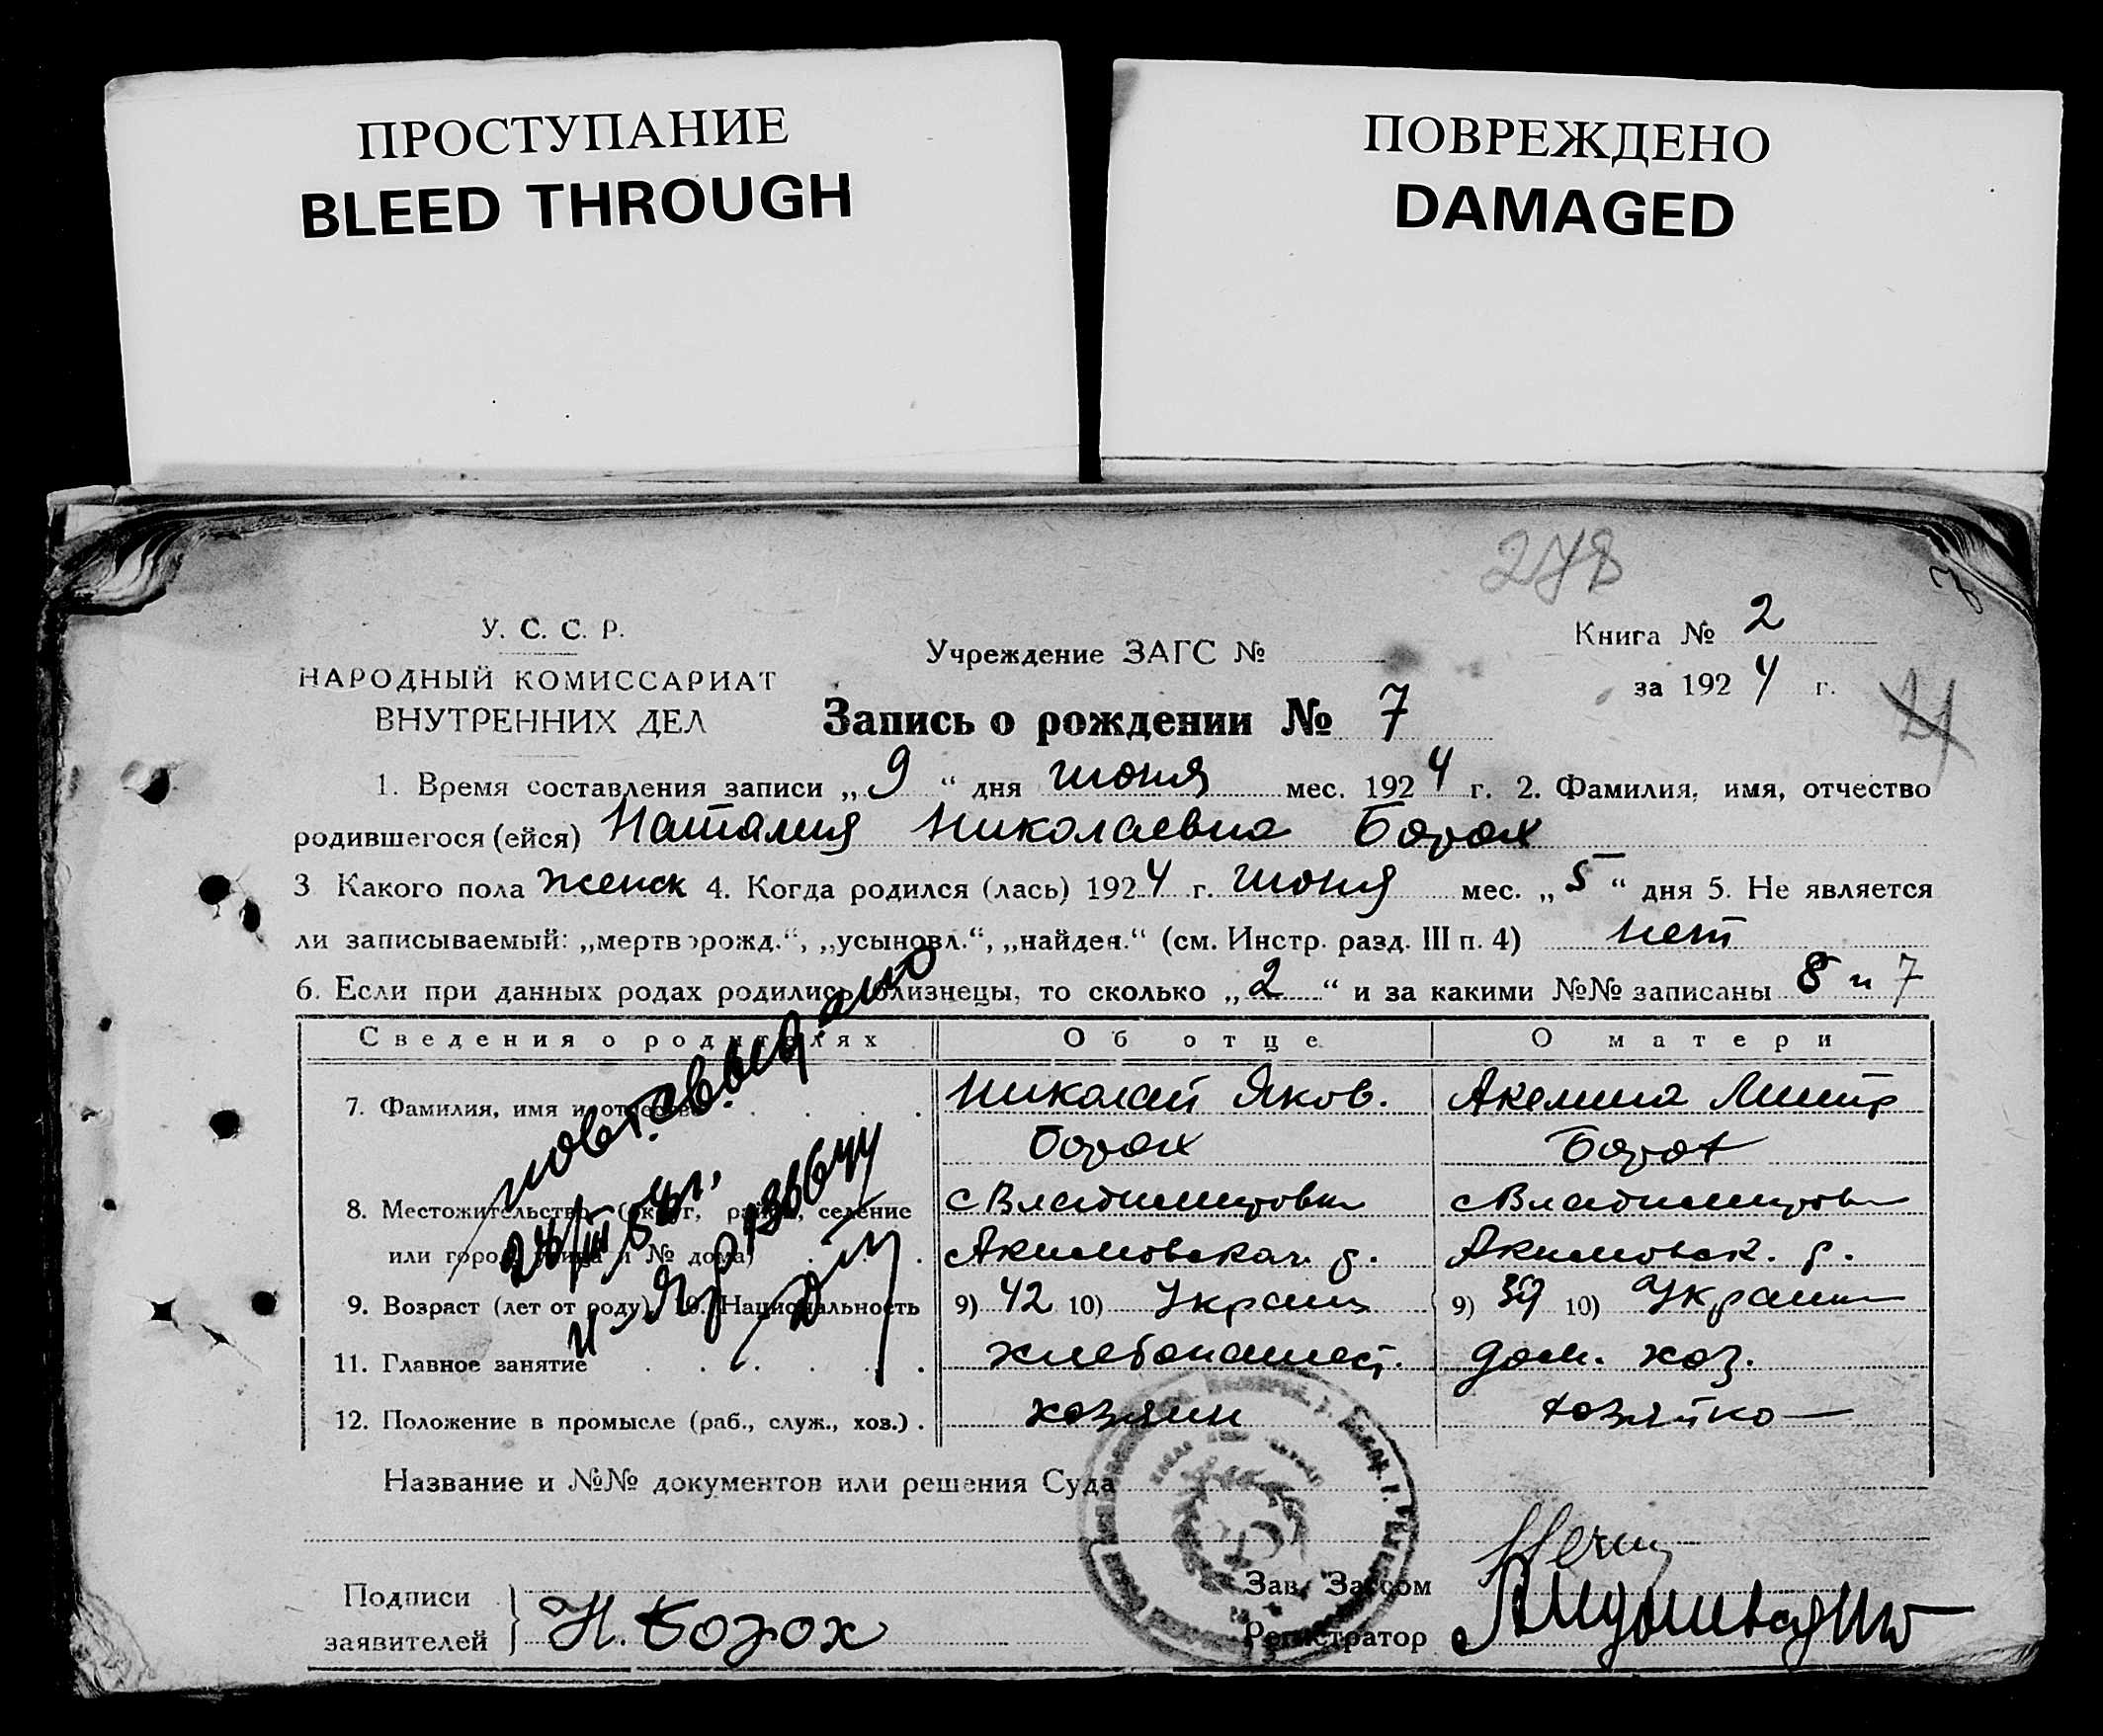 ПРОСТУПАНИЕ
BLEED THROUGH
ПОВРЕЖДЕНО
DAMAGED
278
7
У. С. С. Р.
НАРОДНЫЙ КОМИССАРИАТ
ВНУТРЕННИХ ДЕЛ
Учреждение ЗАГС №
Книга № 2
за 1924 г.
Запись о рождении № 7
1. Время составления записи „9“ дня июня мес. 1924 г. 2. Фамилия, имя, отчество
родившегося (ейся) Наталия Николаевна
3 Какого пола женск 4. Когда родился (лась) 1924 г. июня мес. „5“ дня 5. Не является
ли записываемый: „мертворожд.“, „усыновл.“, „найден.“ (см. Инстр. разд. III п. 4) нет
6. Если при данных родах родились близнецы, то сколько „2“ и за какими №№ записаны 8 и 7
Сведения о родителях Об отце О матери
7. Фамилия, имя и отчество Николай Яков. Акелина
8. Местожительство (округ, район, селение с Владимировка с Владимиров
или город, улица и № дома) Акимовская р. Акимовск. р.
9. Возраст (лет от роду) 10. Национальность 9) 42 10) Украин 9) 39 10) Украин
11. Главное занятие хлебопашест. дом. хоз.
12. Положение в промысле (раб., служ., хоз.) хозяин хозяйка
повт. выдано
Название и №№ документов или решения Суда
Подписи
заявителей
Н.
Зав. Загсом
Регистратор